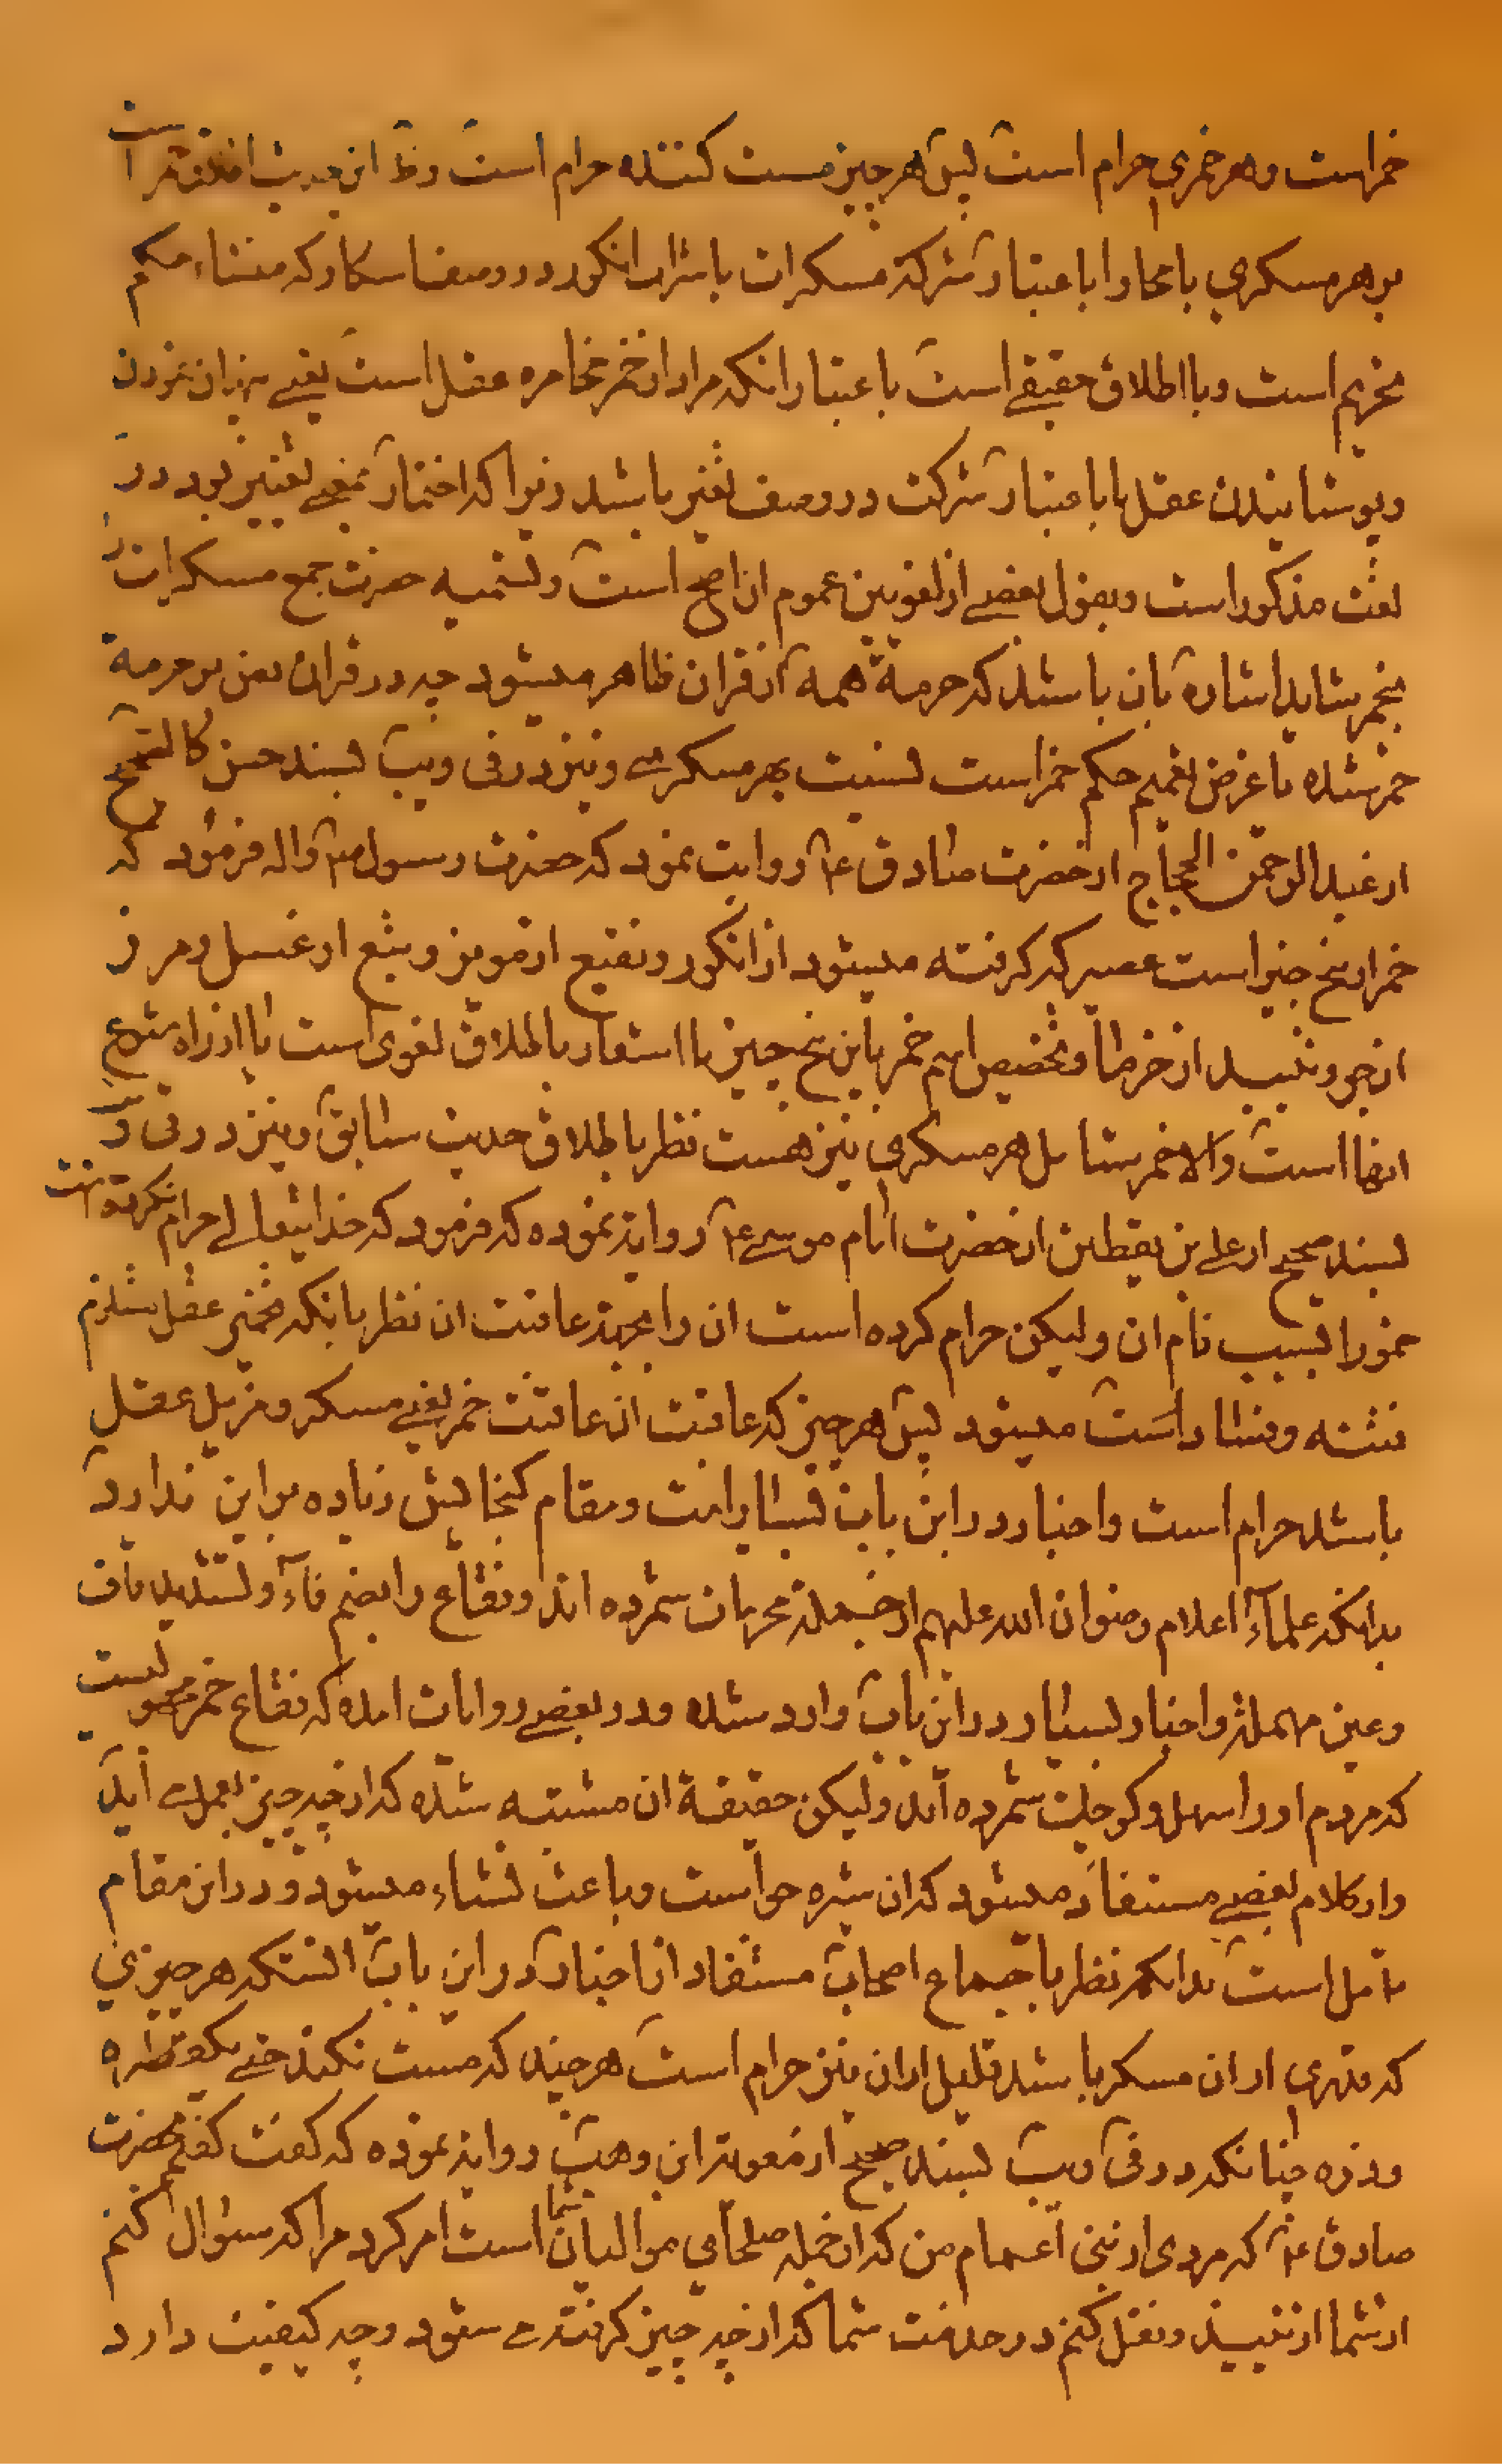 خمر است و هر خمری حرام است پس هر چیز مست کننده حرام است و ظ این حدیث اطلاق خمر است
بر هر مسکری یا مجازا باعتبار شرکة مسکرات با شراب انکور در وصف اسکار که منشاء حکم
تحریم است و یا اطلاق حقیقی است باعتبار انکه مراد از خمر مخامره عقل است یعنی پنهان نمودن
و پوشانیدن عقل یا باعتبار شرکت در وصف تغیر باشد زیرا که اختمار بمعنی تغییر بود در
لغت مذکور است و بقول بعضی از لغویین عموم ان اصح است و تسمیه حضرت جمع مسکرات را
بخمر شاید اشاره بان باشد که حرمة همه از قران ظاهر میشود چه در قران نص بر حرمة
خمر شده یا غرض تعمیم حکم خمر است نسبت بهر مسکری و نیز در فی و یب بسند حسن کالصحیح
از عبد الرحمن الحجاج از حضرت صادق ع روایت نمود که حضرت رسول ص و اله فرمود که
خمر از پنج چیز است عصیر که کرفته میشود از انکور و نقیع از مویز و بتع از عسل و مرز
از جو و نبیذ از خرما و تخصیص اسم خمر باین پنج چیز یا اشعار باطلاق لغوی است یا از راه شیوع
انها است و الا خمر شامل هر مسکری نیز هست نظر باطلاق حدیث سابق و نیز در فی و
بسند صحیح از علی بن یقطین از حضرت امام موسی ع روایة نموده که فرمود که خدایتعالی حرام نکرده است
خمر را بسبب نام ان و لیکن حرام کرده است ان را بجهة عاقبت ان نظر بانکه
و میشود پس هر چیز که عاقبت ان عاقبت خمر یعنی مسکر و مزیل عقل
باشد حرام است و اخبار در این باب بسیار است و مقام کنجایش زیاده بر این ندارد
بدانکه علماء اعلام رضوان الله علیهم از جمله محرمات شمرده اند و فقاع را بضم فاء و تشدید قاف
و عین مهمله و اخبار بسیار در این باب وارد شده و در بعضی روایات امده که فقاع خمر
که مردم او را سهل و کوچک شمرده اند و لیکن حقیقة ان مشتبه شده که از چه چیز بعمل اید
و از کلام بعضی مستفاد میشود که ان شیره جو است و باعث نشاء میشود و در این مقام
تامل است بدانکه نظر باجماع اصحاب مستفاد از اخبار در این باب انستکه هر چیزی
که قدری از ان مسکر باشد قلیل از ان نیز حرام است هر چند که مست نکند حتی یکقطره
و ذره چنانکه در فی و یب بسند صحیح از معویة ابن وهب روایة نموده که کفت کفتم بحضرت
صادق ع که مردی از بنی اعمام من که از جمله صلحای موالیان شما است امر کرد مرا که سؤال کنم
از شما از نبیذ و نقل کنم در خدمت شما که از چه چیز کرفته می شود و چه کیفیت دارد